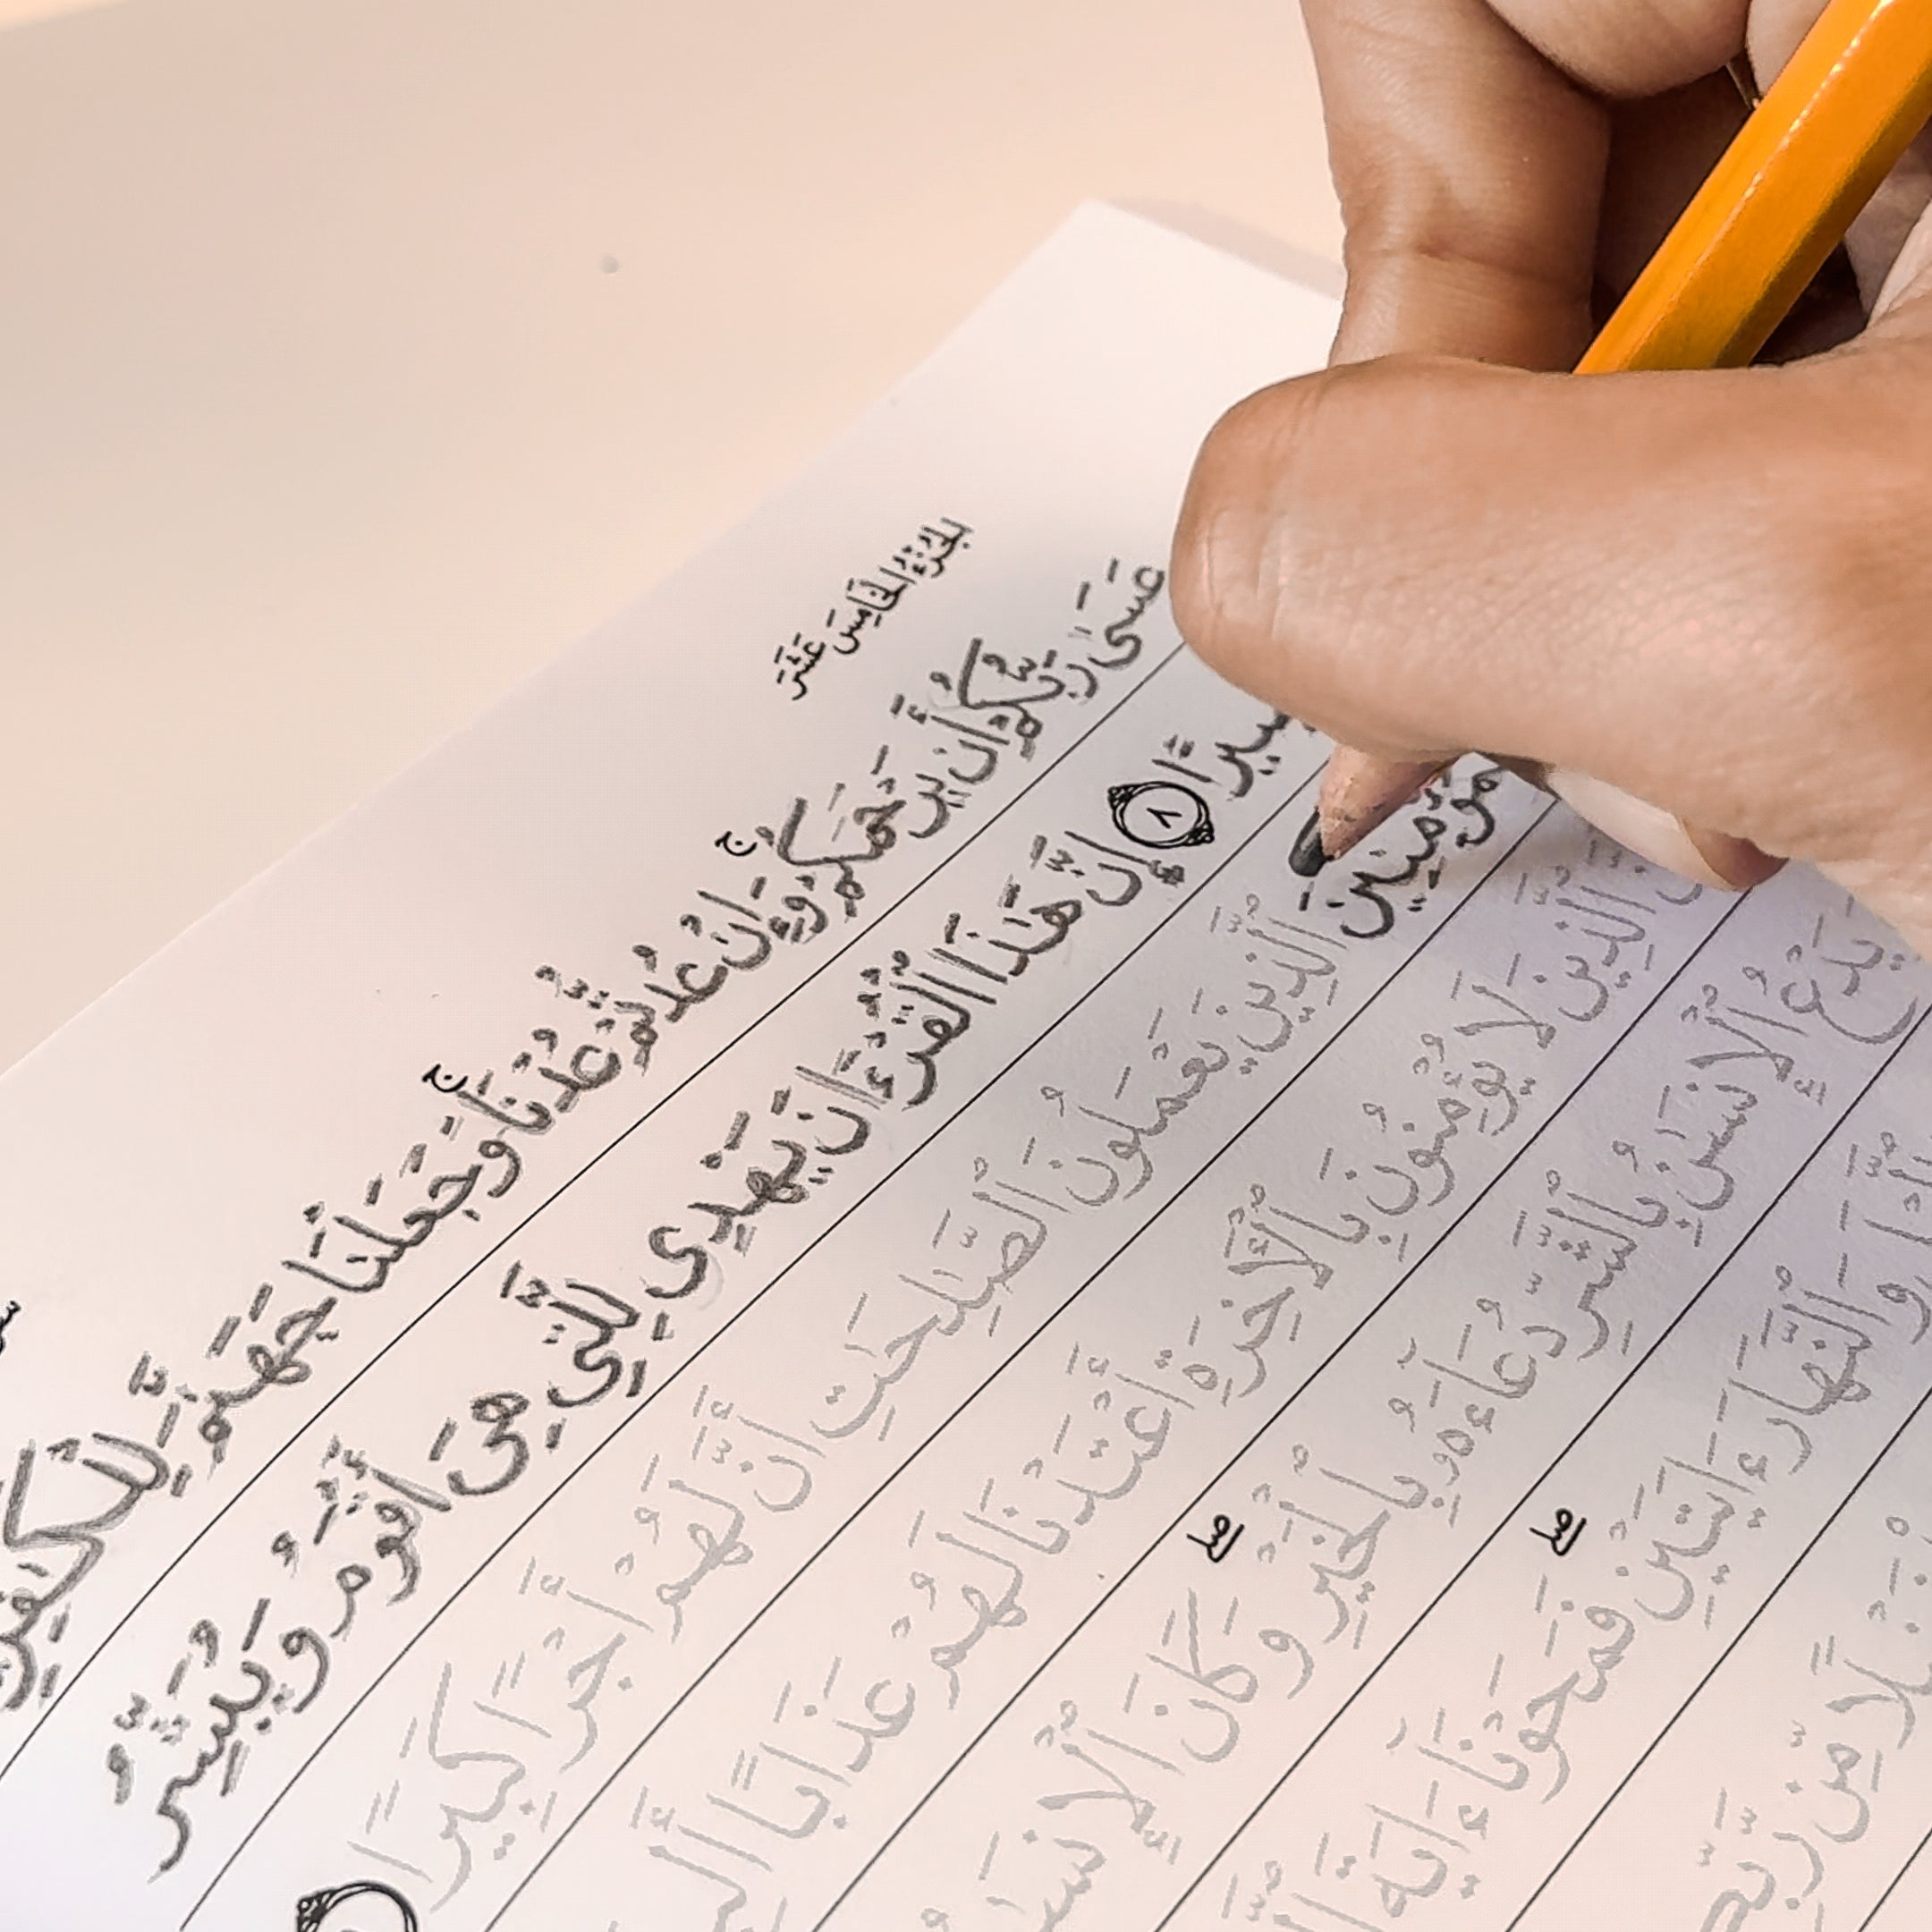 الجُزْءُ الخَامِسَ عَشَرَ
عَسَىٰ رَبُّكُمْ أَن يَرْحَمَكُمْ ۚ وَإِنْ عُدتُّمْ عُدْنَا ۚ وَجَعَلْنَا جَهَنَّمَ لِلْكَٰفِرِ
إِنَّ هَٰذَا ٱلْقُرْءَانَ يَهْدِى لِلَّتِى هِىَ أَقْوَمُ وَيُبَشِّرُ ٨ يرًا
مُؤْمِنِينَ ٱلَّذِينَ يَعْمَلُونَ ٱلصَّٰلِحَٰتِ أَنَّ لَهُمْ أَجْرًا كَبِيرًا
ٱلَّذِينَ لَا يُؤْمِنُونَ بِٱلْءَاخِرَةِ أَعْتَدْنَا لَهُمْ عَذَابًا
يَدْعُ ٱلْإِنسَٰنُ بِٱلشَّرِّ دُعَآءَهُۥ بِٱلْخَيْرِ ۖ وَكَانَ ٱلْإِنسَٰ
وَٱلنَّهَارَ ءَايَتَيْنِ ۖ فَمَحَوْنَآ ءَايَةَ
لًا مِّن رَّبِّ